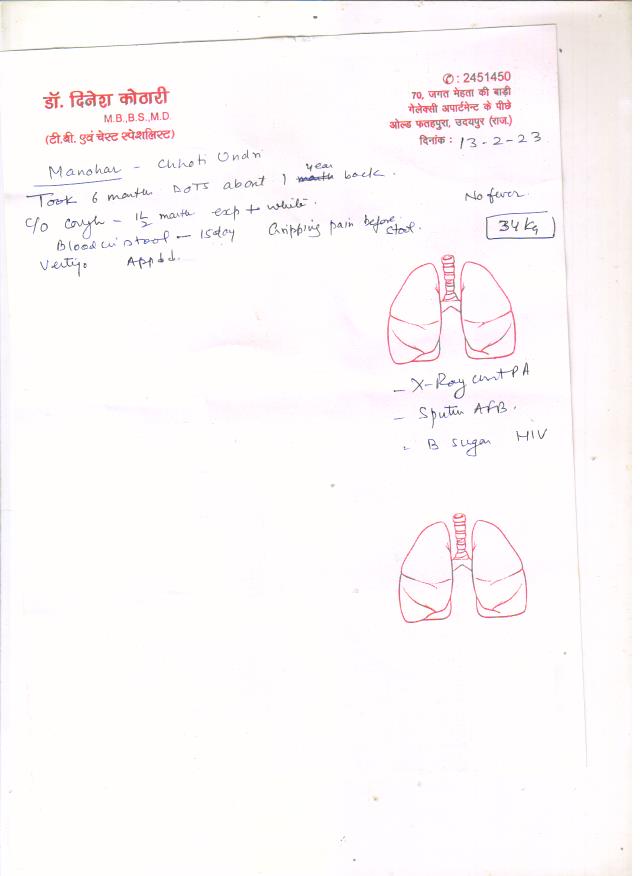 डॉ. दिनेश कोठारी
M.B.,B.S.,M.D.
(टी.बी. एवं चेस्ट स्पेशलिस्ट)
✆: 2451450
70, जगत मेहता की बाड़ी
गेलेक्सी अपार्टमेन्ट के पीछे
ओल्ड फतहपुरा, उदयपुर (राज.)
दिनांक : 13-2-23
Manohar - Chhoti Undri
Took 6 month DOTS about 1 year back.
No fever.
C/o Cough - 1 1/2 month exp + white.
34 Kg
Blood in stool - 15 day Gripping pain before stool.
Vertigo App ↓↓.
- X-Ray chest PA
- Sputum AFB.
- B sugar HIV